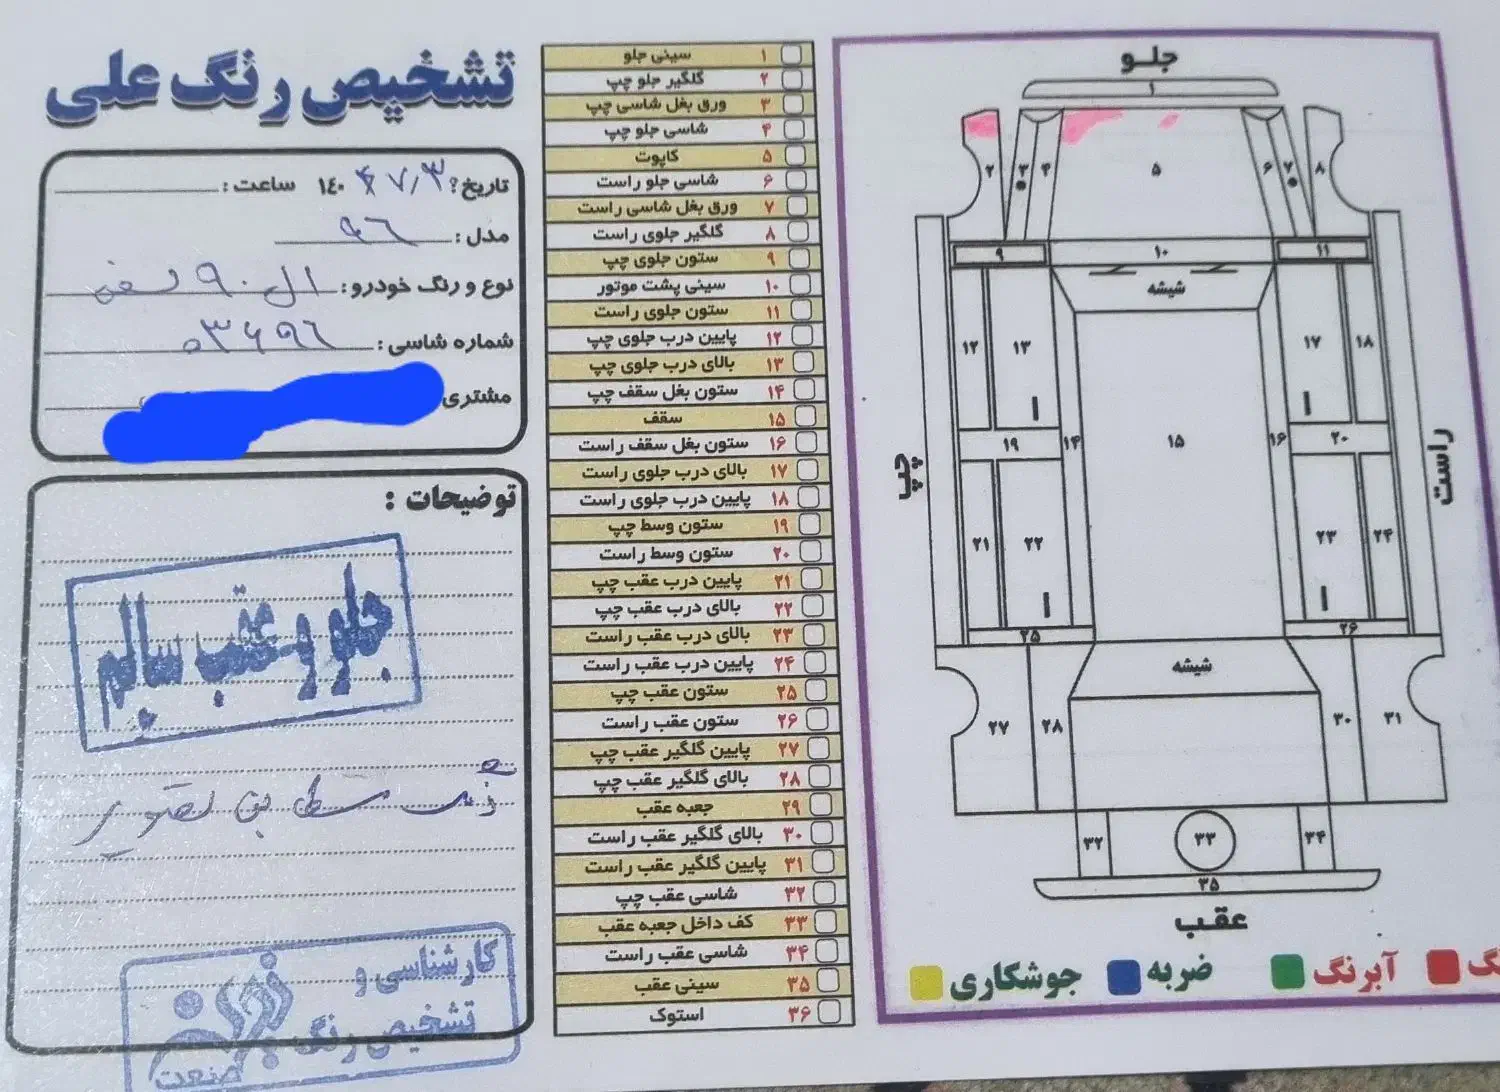 تشخیص رنگ علی
تاریخ: ۱۴۰۴/۷/۳ ساعت:
مدل: ۹۶
نوع و رنگ خودرو: ال ۹۰ سفید
شماره شاسی: ۰۳۶۹۶
مشتری
توضیحات :
جلو و عقب سالم
تست مطابق تصویر
کارشناسی و
تشخیص رنگ
صنعت
۱ سینی جلو
۲ گلگیر جلو چپ
۳ ورق بغل شاسی چپ
۴ شاسی جلو چپ
۵ کاپوت
۶ شاسی جلو راست
۷ ورق بغل شاسی راست
۸ گلگیر جلوی راست
۹ ستون جلوی چپ
۱۰ سینی پشت موتور
۱۱ ستون جلوی راست
۱۲ پایین درب جلوی چپ
۱۳ بالای درب جلوی چپ
۱۴ ستون بغل سقف چپ
۱۵ سقف
۱۶ ستون بغل سقف راست
۱۷ بالای درب جلوی راست
۱۸ پایین درب جلوی راست
۱۹ ستون وسط چپ
۲۰ ستون وسط راست
۲۱ پایین درب عقب چپ
۲۲ بالای درب عقب چپ
۲۳ بالای درب عقب راست
۲۴ پایین درب عقب راست
۲۵ ستون عقب چپ
۲۶ ستون عقب راست
۲۷ پایین گلگیر عقب چپ
۲۸ بالای گلگیر عقب چپ
۲۹ جعبه عقب
۳۰ بالای گلگیر عقب راست
۳۱ پایین گلگیر عقب راست
۳۲ شاسی عقب چپ
۳۳ کف داخل جعبه عقب
۳۴ شاسی عقب راست
۳۵ سینی عقب
۳۶ استوک
جلو
۱
۲ ۳ ۴ ۵ ۶ ۷ ۸
۹ ۱۰ ۱۱
شیشه
۱۲ ۱۳ ۱۷ ۱۸
چپ ۱۹ ۱۴ ۱۵ ۱۶ ۲۰ راست
۲۱ ۲۲ ۲۳ ۲۴
۲۵ ۲۶
شیشه
۲۷ ۲۸ ۳۰ ۳۱
۳۲ ۳۳ ۳۴
۳۵
عقب
نگ آبرنگ ضربه جوشکاری